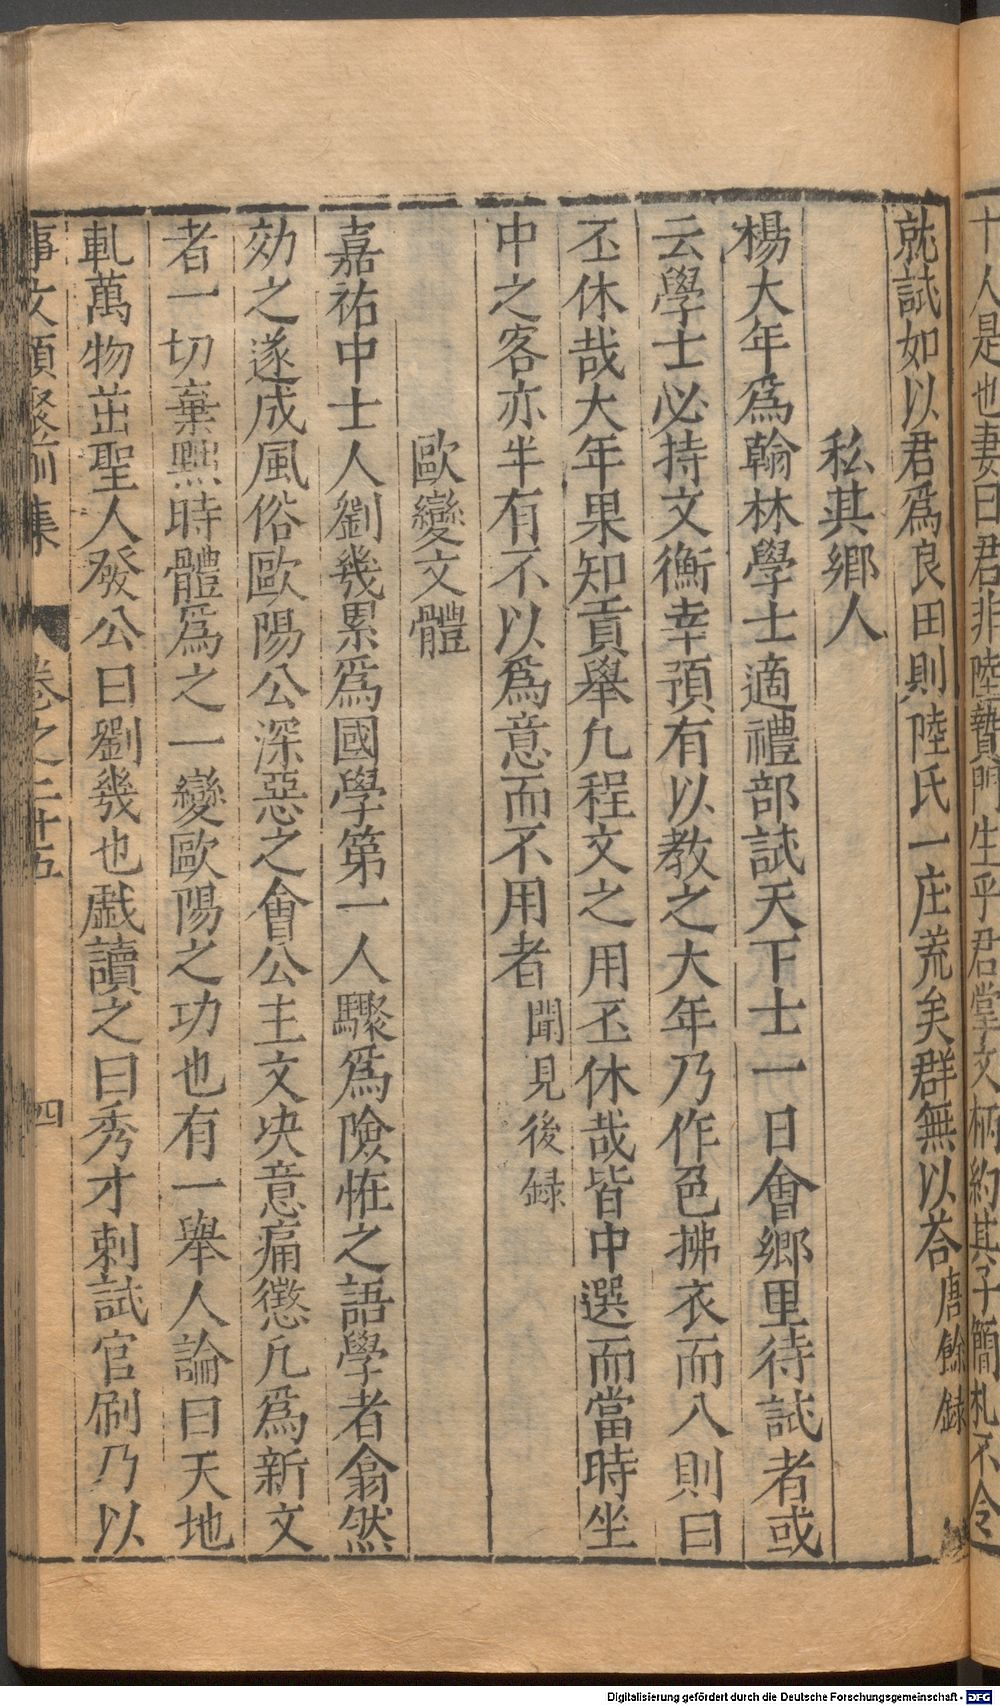 十人是也妻曰君非陸贄門生乎君堂文柄約其子簡札不令
就試如以君爲良田則陸氏一庄荒矣群無以荅唐餘録
私其鄉人
楊大年爲翰林學士適禮部試天下士一日會鄉里待試者或
云學士必持文衡幸預有以教之大年乃作色拂衣而入則曰
丕休哉大年果知貢舉凢程文之用丕休哉皆中選而當時坐
中之客亦半有不以爲意而不用者聞見後録
歐變文體
嘉祐中士人劉幾累爲國學第一人驟爲險恠之語學者翕然
効之遂成風俗歐陽公深惡之會公主文决意痛懲凢爲新文
者一切棄黜時體爲之一變歐陽之功也有一舉人論曰天地
軋萬物茁聖人發公曰劉幾也戱讀之曰秀才剌試官刷乃以
事文類聚前集 卷之二十五 四
Digitalisierung gefördert durch die Deutsche Forschungsgemeinschaft - DFG